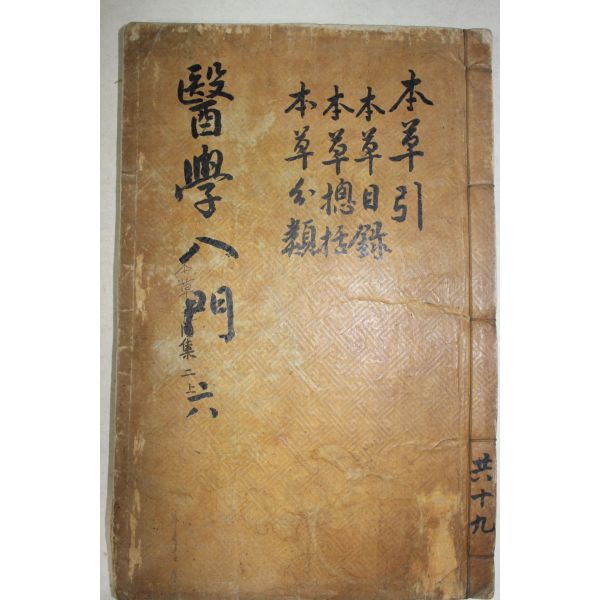 本草引
本草目錄
本草摠括
本草分類
醫學入門 六
本草
集 二上
共十九